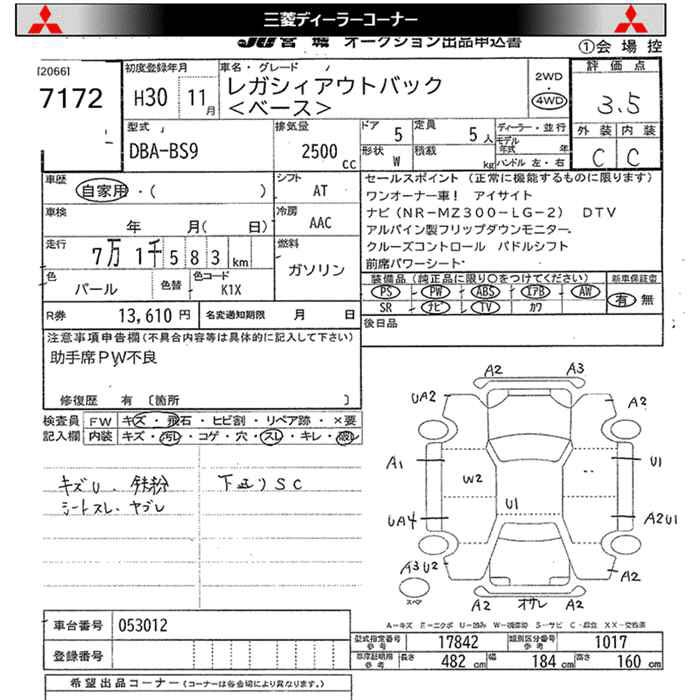 三菱ディーラーコーナー
JU宮城 オークション出品申込書
①会場控
[20661
7172
初度登録年月
H30 11月
車名・グレード
レガシィアウトバック
<ベース>
2WD
4WD
評価点
3.5
外装 内装
C C
型式
DBA-BS9
排気量
2500cc
ドア 5
定員 5人
形状 W
積載 kg
ディーラー・並行
モデル年式 年
ハンドル 左・右
車歴
自家用・( )
シフト AT
車検
年 月( 日)
冷房 AAC
走行
7万1千583km
燃料
ガソリン
色 パール
色替
色コード K1X
R券 13,610円
名変通知期限 月 日
セールスポイント (正常に機能するものに限ります)
ワンオーナー車! アイサイト
ナビ(NR-MZ300-LG-2) DTV
アルパイン製フリップダウンモニター
クルーズコントロール パドルシフト
前席パワーシート
装備品(純正品に限り○をつけてください)
新車保証書
PS PW ABS エアB AW
有 無
SR ナビ TV カワ
後日品
注意事項申告欄(不具合内容等は具体的に記入して下さい)
助手席PW不良
修復歴 有 〔箇所 〕
検査員
記入欄
FW キズ・飛石・ヒビ割・リペア跡・×要
内装 キズ・汚レ・コゲ・穴・スレ・キレ・破レ
キズU.鉄粉
シートスレ.ヤブレ
下廻りSC
A2 A3
UA2 A2
A1 U1
W2
U1
UA4 A2U1
A3U2 A2
スペア
A2 オサレ A2
A-キズ E-エクボ U-凹み W-補修跡 S-サビ C-腐蝕 XX-交換済
車台番号 053012
登録番号
型式指定番号 参考 17842
類別区分番号 参考 1017
車両諸元 参考 長さ 482cm 幅 184cm 高さ 160cm
希望出品コーナー(コーナーは各会場により異なります。)